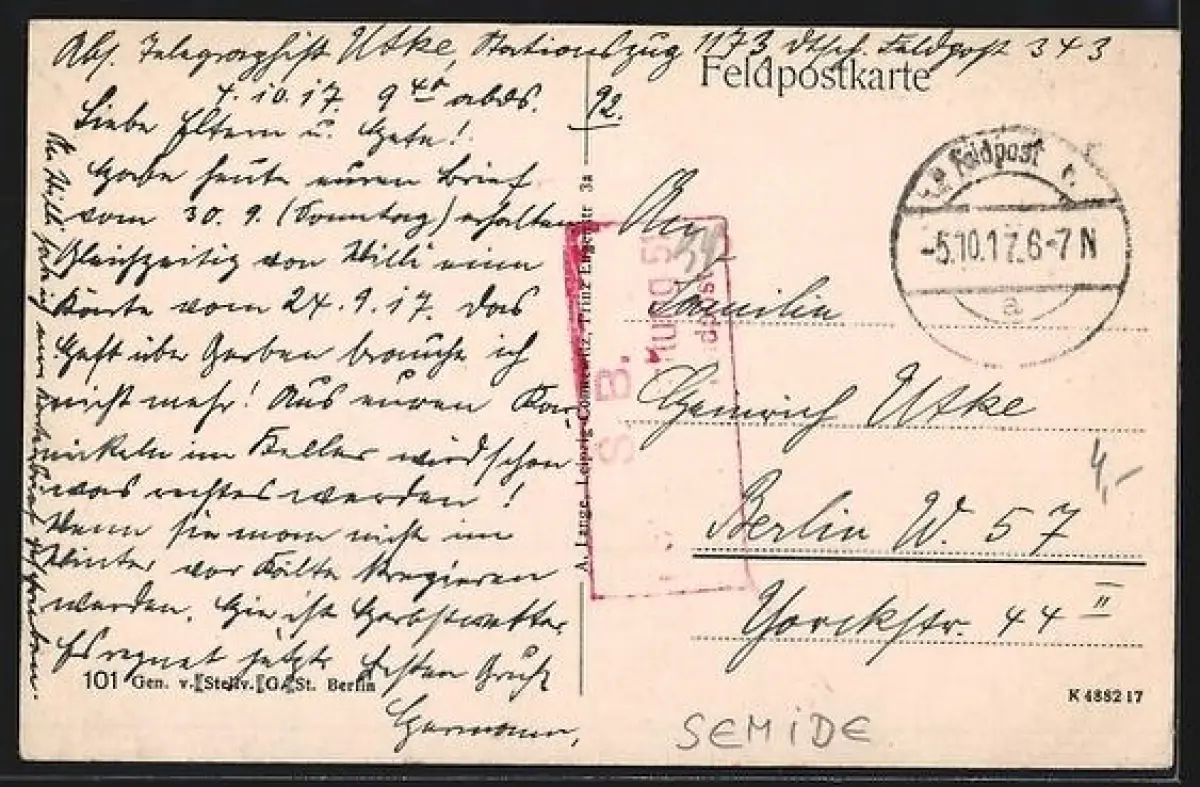 Abs. Telegraphist Utke, Stationszug 1173 dtsch. Feldpost 343
Feldpostkarte
4.10.17. 9 40 abds.
92.
Liebe Eltern u. Grete!
Habe heute euren Brief
vom 30.9. (Sonntag) erhalten
Gleichzeitig von Willi eine
Karte vom 24.9.17. Das
Heft über Gerben brauche ich
nicht mehr! Aus euren Kar-
nickeln im Keller wird schon
was rechtes werden!
Wenn sie man nicht im
Winter vor Kälte krepieren
werden. Hier ist Herbstwetter
Es regnet jetzt. Besten Gruß
Hermann,
An
Familie
Heinrich Utke
Berlin W. 57
Yorckstr. 44 II
4,-
K.D. Feldpost
-5.10.17.6-7N
a
S. B.
A. Lange, Leipzig-Connewitz, Prinz Eugenstr 3a
101 Gen. v. Stellv. G. St. Berlin
K 488217
SEMIDE